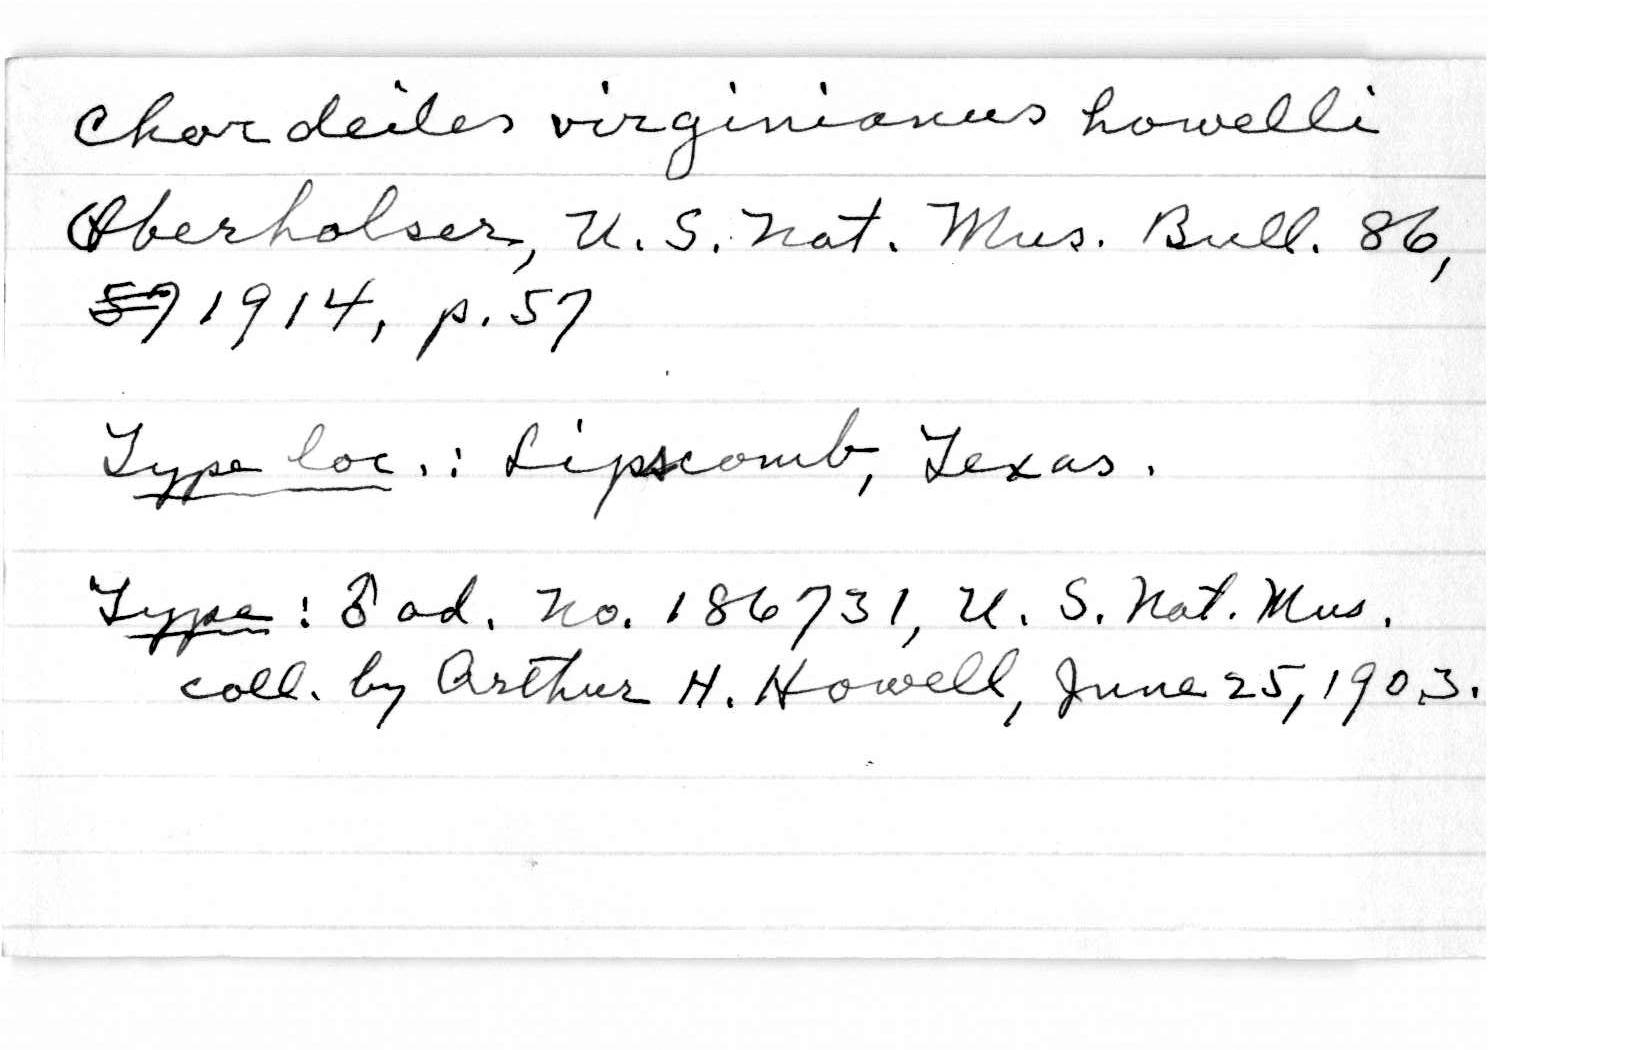 Chordeiles virginianus howelli
Oberholser, U. S. Nat. Mus. Bull. 86,
57 1914, p. 57
Type loc.: Lipscomb, Texas.
Type: ♂ ad. No. 186731, U. S. Nat. Mus.
coll. by Arthur H. Howell, June 25, 1903.